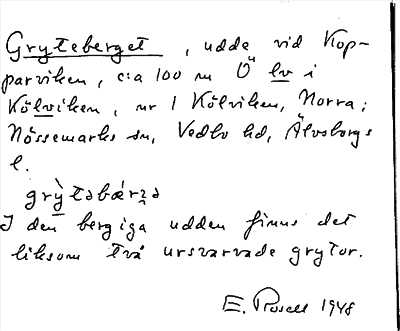 Gryteberget, udde vid Kop-
parviken, c:a 100 m Ö lv i
Kölviken, nr 1 Kölviken, Norra;
Nössemarks sn, Vedbo hd, Älvsborgs
l.
grỳtəbærɜə
I den bergiga udden finns det
liksom två ursvarvade grytor.
E. Rosell 1948